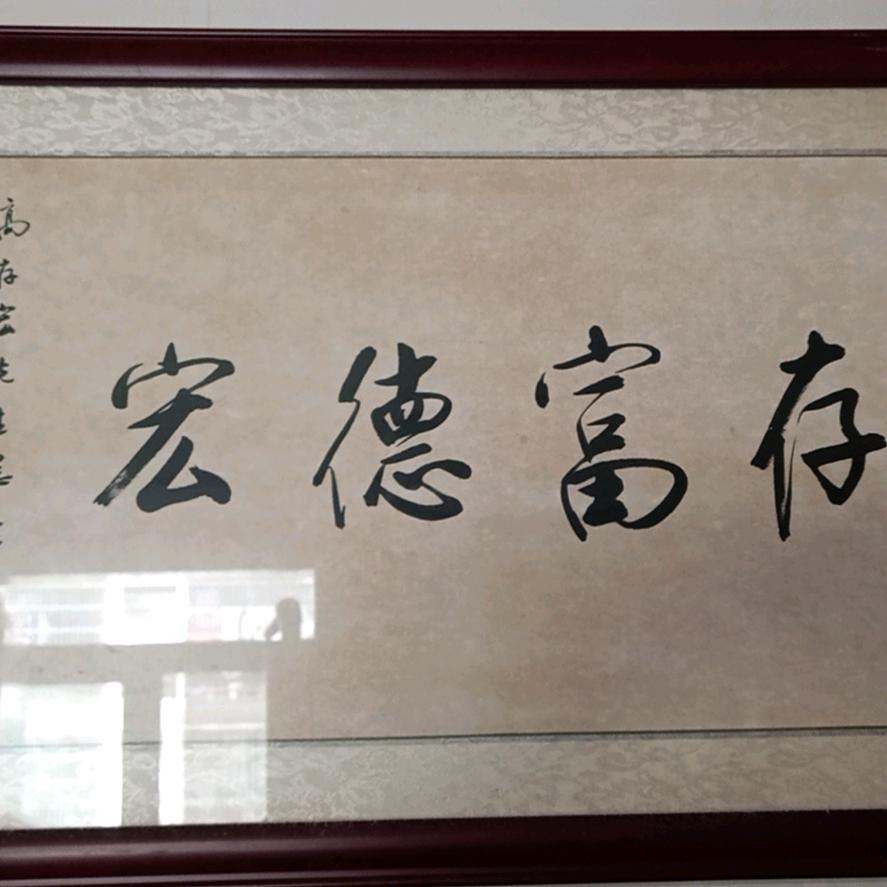 存富德宏
高存宏先生